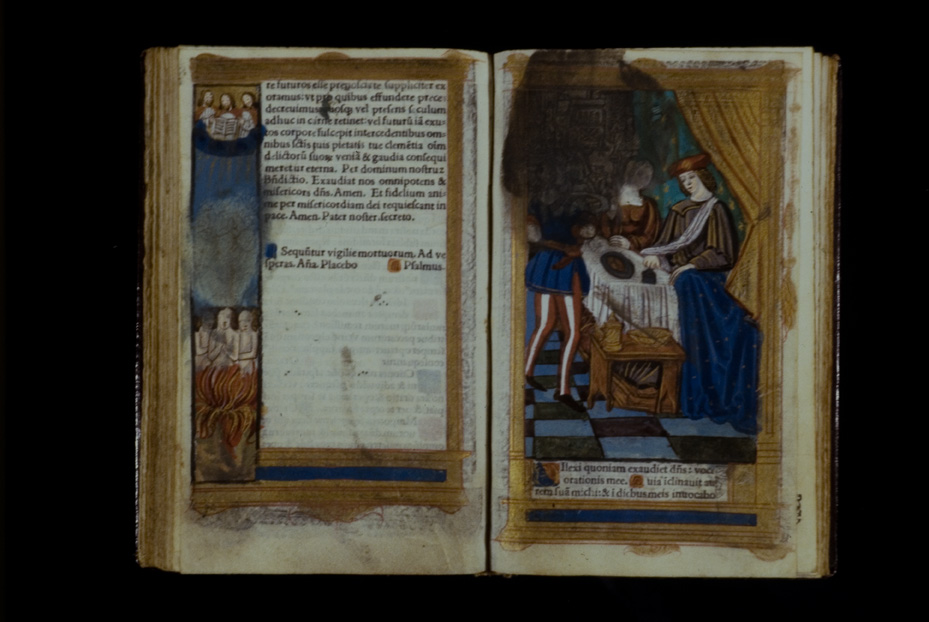 re futuros esse prenoscis: te suppliciter ex
oramus: vt pro quibus effundere preces
decreuimus quosq; vel presens seculum
adhuc in carne retinet: vel futurũ iã exu-
tos corpore suscepit intercedentibus om-
nibus sctis tuis pietatis tue clemẽtia oĩm
delictorũ suoꝝ veniã & gaudia consequi
mereãtur eterna. Per dominum nostruz
Bñdictio. Exaudiat nos omnipotens &
misericors dñs. Amen. Et fidelium ani-
me per misericordiam dei requiescant in
pace. Amen. Pater noster. secreto.
Sequũtur vigilie mortuorum. Ad ve
speras. Aña. Placebo Psalmus.
Ilexi quoniam exaudiet dñs: voce
orationis mee. Quia iclinauit au
rem suã michi: & i diebus meis inuocabo